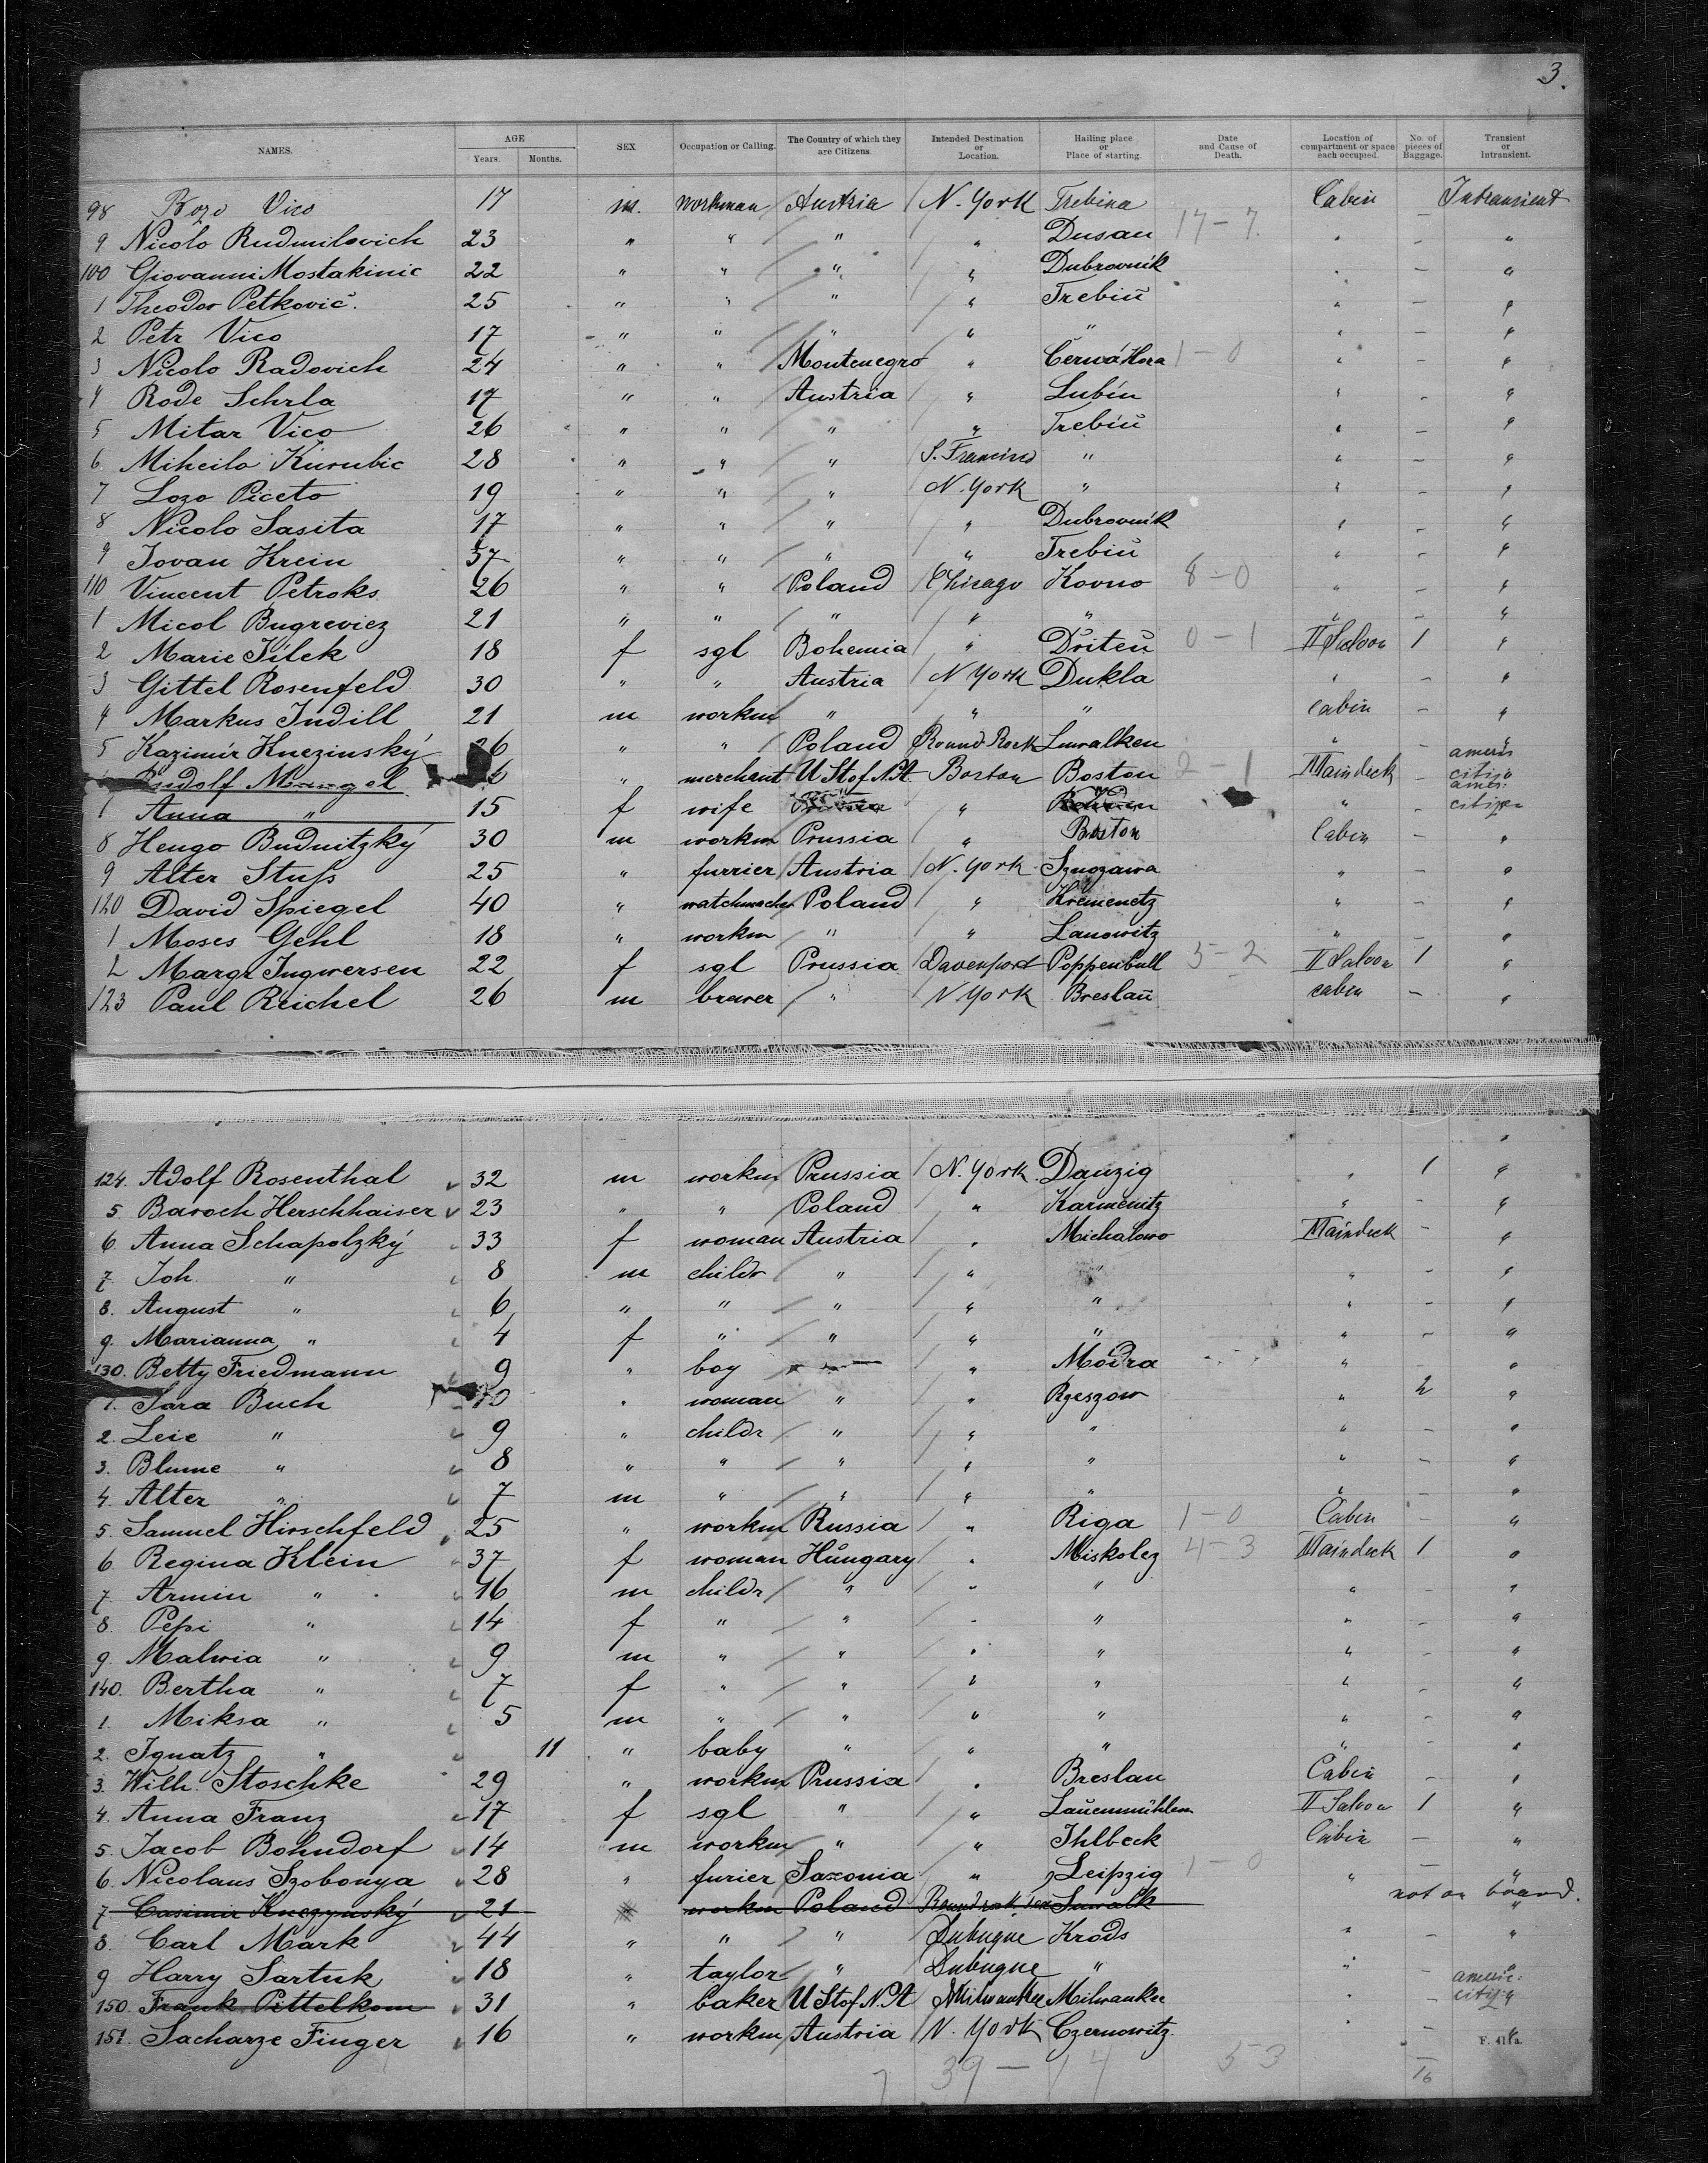 3.
NAMES. AGE Years. Months. SEX Occupation or Calling. The Country of which they are Citizens. Intended Destination or Location. Hailing place or Place of starting. Date and Cause of Death. Location of compartment or space each occupied. No. of pieces of Baggage. Transient or Intransient.
98 Bozo Vico 17 m. workman Austria N. York Trebina Cabin Intransient
9 Nicolo Rudmilovich 23 " " " " Dusan 17-7 " - "
100 Giovanni Mostakinic 22 " " " " Dubrovnik " - "
1 Theodor Petkovič. 25 " " " " Trebiň " - "
2 Petr Vico 17 " " " " " " - "
3 Nicolo Radovich 24 " " Montenegro " Černá Hora 1-0 " - "
4 Rode Schrla 17 " " Austria " Lubin " - "
5 Mitar Vico 26 " " " " Trebiň " - "
6. Miheilo Kurubic 28 " " " S. Francisco " " - "
7 Lozo Piceto 19 " " " N. York " " - "
8 Nicolo Sasita 17 " " " " Dubrovnik " - "
9 Jovan Krein 37 " " " " Trebiň " - "
110 Vincent Petroks 26 " " Poland Chicago Kovno 8-0 " - "
1 Micol Bugreviez 21 " " " " " " - "
2 Marie Jílek 18 f sgl Bohemia " Dřiteň 0-1 II Saloon 1 "
3 Gittel Rosenfeld 30 " " Austria N York Dukla " - "
4 Markus Indill 21 m workm " " " Cabin - "
5 Kazimír Knezinský 26 " " Poland Round Rock Suwalken " - "
Rudolf " merchant U St of N. A. Boston Boston 2-1 Maindeck - americ citiz
1 Anna " 15 f wife " " - amer. citizen
8 Hengo Budnitzký 30 m workm Prussia " Boston Cabin - "
9 Alter Stuss 25 " furrier Austria N. York " - "
120 David Spiegel 40 " watchmacher Poland " Kremenetz " - "
1 Moses Gehl 18 " workm " " Lanowitz " - "
2 Margr Ingwersen 22 f sgl Prussia Davenport Poppenbull 5-2 II Saloon 1 "
123 Paul Reichel 26 m brewer " N York Breslau cabin - "
124. Adolf Rosenthal 32 m workm Prussia N. York Danzig " 1 "
5. Baroch Herschhaiser 23 " " Poland " Karmenitz " - "
6. Anna Schapolzký 33 f woman Austria " Michalowo Maindeck - "
7. Joh. " 8 m childr " " " " - "
8. August " 6 " " " " " " - "
9. Marianna " 4 f " " " " " - "
130. Betty Friedmann 9 " boy " Modra " - "
1. Sara Buch " woman " " Rzeszow " 2 "
2. Leie " 9 " childr " " " " - "
3. Blume " 8 " " " " " " - "
4. Alter " 7 m " " " " " - "
5. Samuel Hirschfeld 25 " workm Russia " Riga 1-0 Cabin - "
6. Regina Klein 37 f woman Hungary " Miskolcz 4-3 Maindeck 1 "
7. Armin " 16 m childr " " " " - "
8. Pepi " 14 f " " " " " - "
9. Malwia " 9 m " " " " " - "
140. Bertha " 7 f " " " " " - "
1. Miksa " 5 m " " " " " - "
2. Ignatz " 11 " baby " " " " - "
3. Wilh. Stoschke 29 " workm Prussia " Breslau Cabin - "
4. Anna Franz 17 f sgl " " Lauenmühlen II Saloon 1 "
5. Jacob Bohndorf 14 m workm " " Ihlbeck Cabin - "
6. Nicolaus Szobonya 28 " furier Saxonia " Leipzig 1-0 " - "
7 Casimir Knezynský 21 workm Poland Roundrock Tex Suwalk not on board. "
8. Carl Mark 44 " " " Dubuque Krods " - "
9 Harry Sartuk 18 " taylor " Dubuque " " - "
150. Frank Pittelkom 31 " baker U St of N. A Milwaukee Milwaukee " - americ. city.
151. Sacharze Finger 16 " workm Austria N. York Czernowitz " - "
F. 411a.
7 39-14 53 16